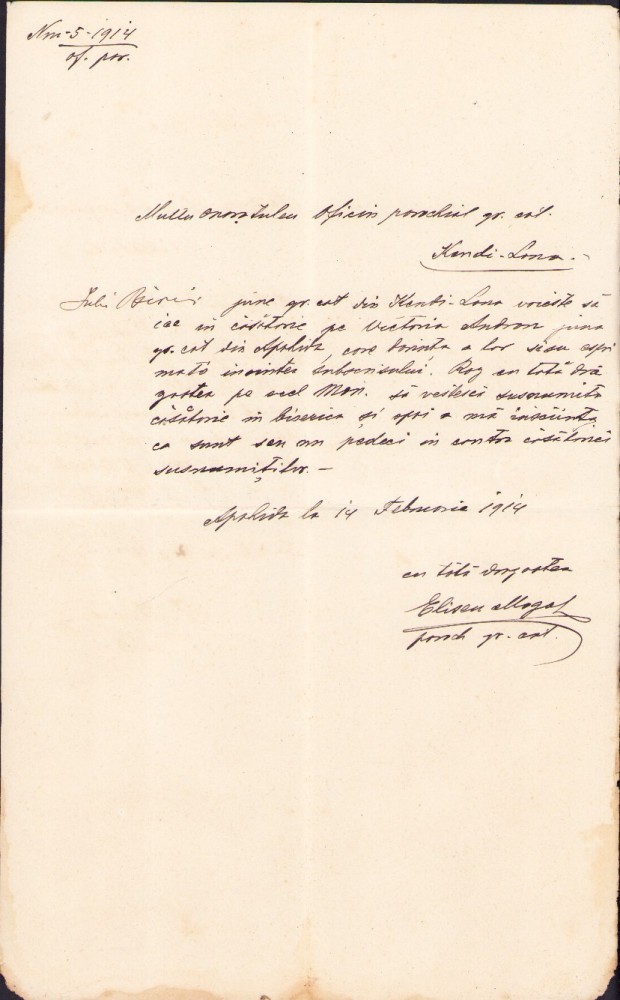 Nru-5-1914
of. par.
Multu onoratului Oficiu parochial gr. cat.
Kendi-Lona.-
june gr. cat din Kendi-Lona voieste să
iae in căsătorie pe Victoria Andron juna
gr. cat din Apahida, care dorința a lor si-au espri
mato inaintea subscrisului. Rog cu totă dra
gostea pe acel On. să vestescă susnumita
căsătorie in biserica și apoi a mă însciința
ca sunt seu nu pedeci in contra căsătoriei
susnumiților. -
Apahida la 14 Februarie 1914
cu totă dragostea
Eliseu
paroch gr. cat.